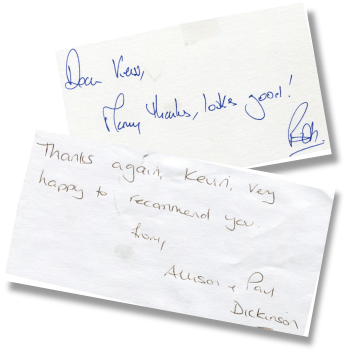 Dear
Many thanks, looks good!
Thanks again, Kevin. Very
happy to recommend you.
from,
Allison + Paul
Dickinson